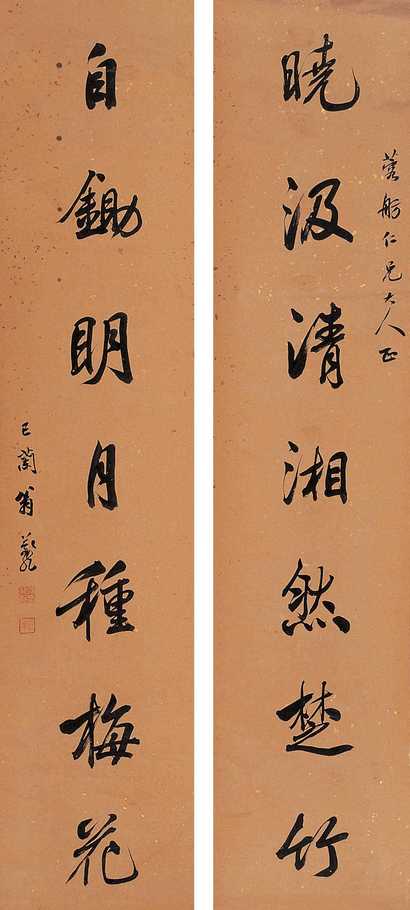 蓉舫仁兄大人正
曉汲清湘然楚竹
自鋤明月種梅花
翁